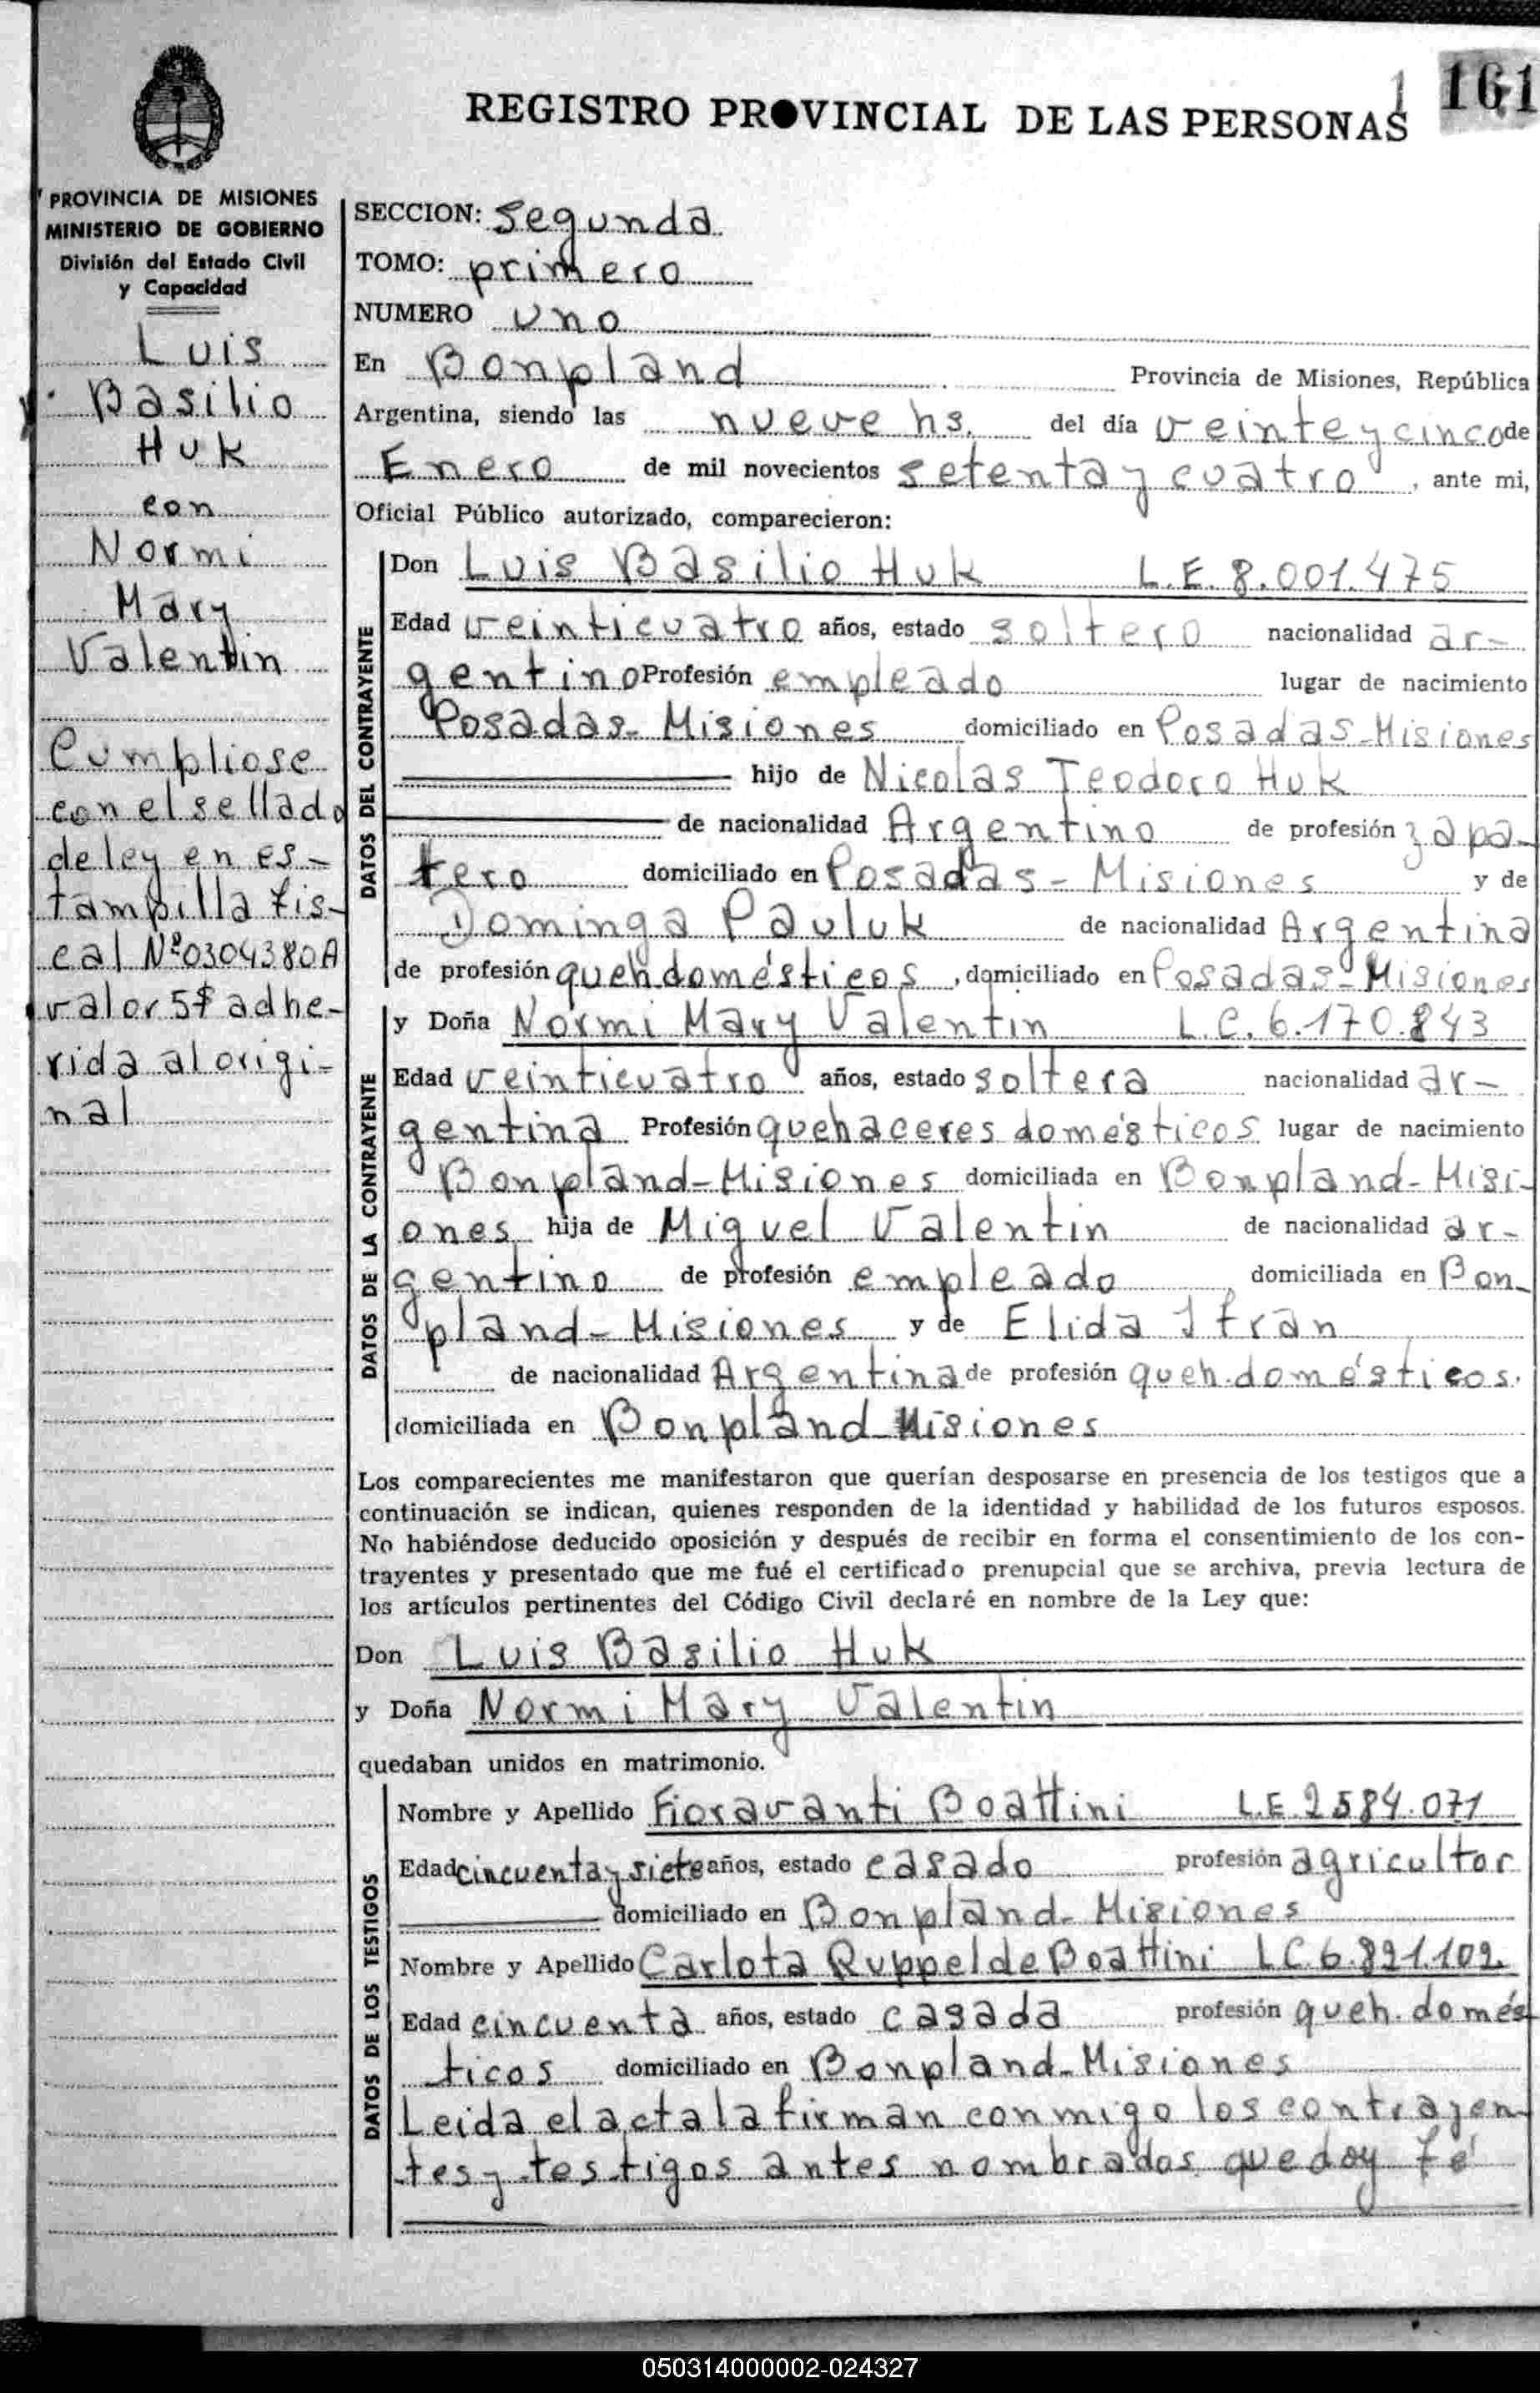 REGISTRO PROVINCIAL DE LAS PERSONAS
1 161
PROVINCIA DE MISIONES
MINISTERIO DE GOBIERNO
División del Estado Civil
y Capacidad
Luis
Basilio
Huk
con
Normi
Mary
Valentin
Cumpliose
con el sellado
de ley en es-
tampilla fis-
cal Nº 0304380A
valor 5$ adhe-
rida al origi-
nal
SECCION: Segunda
TOMO: primero
NUMERO uno
En Bonpland Provincia de Misiones, República
Argentina, siendo las nueve hs. del día veinte y cinco de
Enero de mil novecientos setenta y cuatro, ante mi,
Oficial Público autorizado, comparecieron:
DATOS DEL CONTRAYENTE
Don Luis Basilio Huk L.E. 8.001.475
Edad veinticuatro años, estado soltero nacionalidad ar-
gentino Profesión empleado lugar de nacimiento
Posadas- Misiones domiciliado en Posadas-Misiones
hijo de Nicolas Teodoro Huk
de nacionalidad Argentino de profesión zapa-
tero domiciliado en Posadas- Misiones y de
Dominga Pauluk de nacionalidad Argentina
de profesión queh domésticos, domiciliado en Posadas-Misiones
DATOS DE LA CONTRAYENTE
y Doña Normi Mary Valentin L.C. 6.170.843
Edad veinticuatro años, estado soltera nacionalidad ar-
gentina Profesión quehaceres domésticos lugar de nacimiento
Bonpland-Misiones domiciliada en Bonpland-Misi-
ones hija de Miguel Valentin de nacionalidad ar-
gentino de profesión empleado domiciliada en Bon-
pland- Misiones y de Elida Ifran
de nacionalidad Argentina de profesión queh. domésticos.
domiciliada en Bonpland Misiones
Los comparecientes me manifestaron que querían desposarse en presencia de los testigos que a
continuación se indican, quienes responden de la identidad y habilidad de los futuros esposos.
No habiéndose deducido oposición y después de recibir en forma el consentimiento de los con-
trayentes y presentado que me fué el certificado prenupcial que se archiva, previa lectura de
los artículos pertinentes del Código Civil declaré en nombre de la Ley que:
Don Luis Basilio Huk
y Doña Normi Mary Valentin
quedaban unidos en matrimonio.
DATOS DE LOS TESTIGOS
Nombre y Apellido Fioravanti Boattini L.E 2584.071
Edad cincuenta y siete años, estado casado profesión agricultor
domiciliado en Bonpland- Misiones
Nombre y Apellido Carlota Ruppel de Boattini LC 6.821.102
Edad cincuenta años, estado casada profesión queh. domés
ticos domiciliado en Bonpland-Misiones
Leida el acta la firman conmigo los contrayen-
tes y testigos antes nombrados que doy fé
050314000002-024327